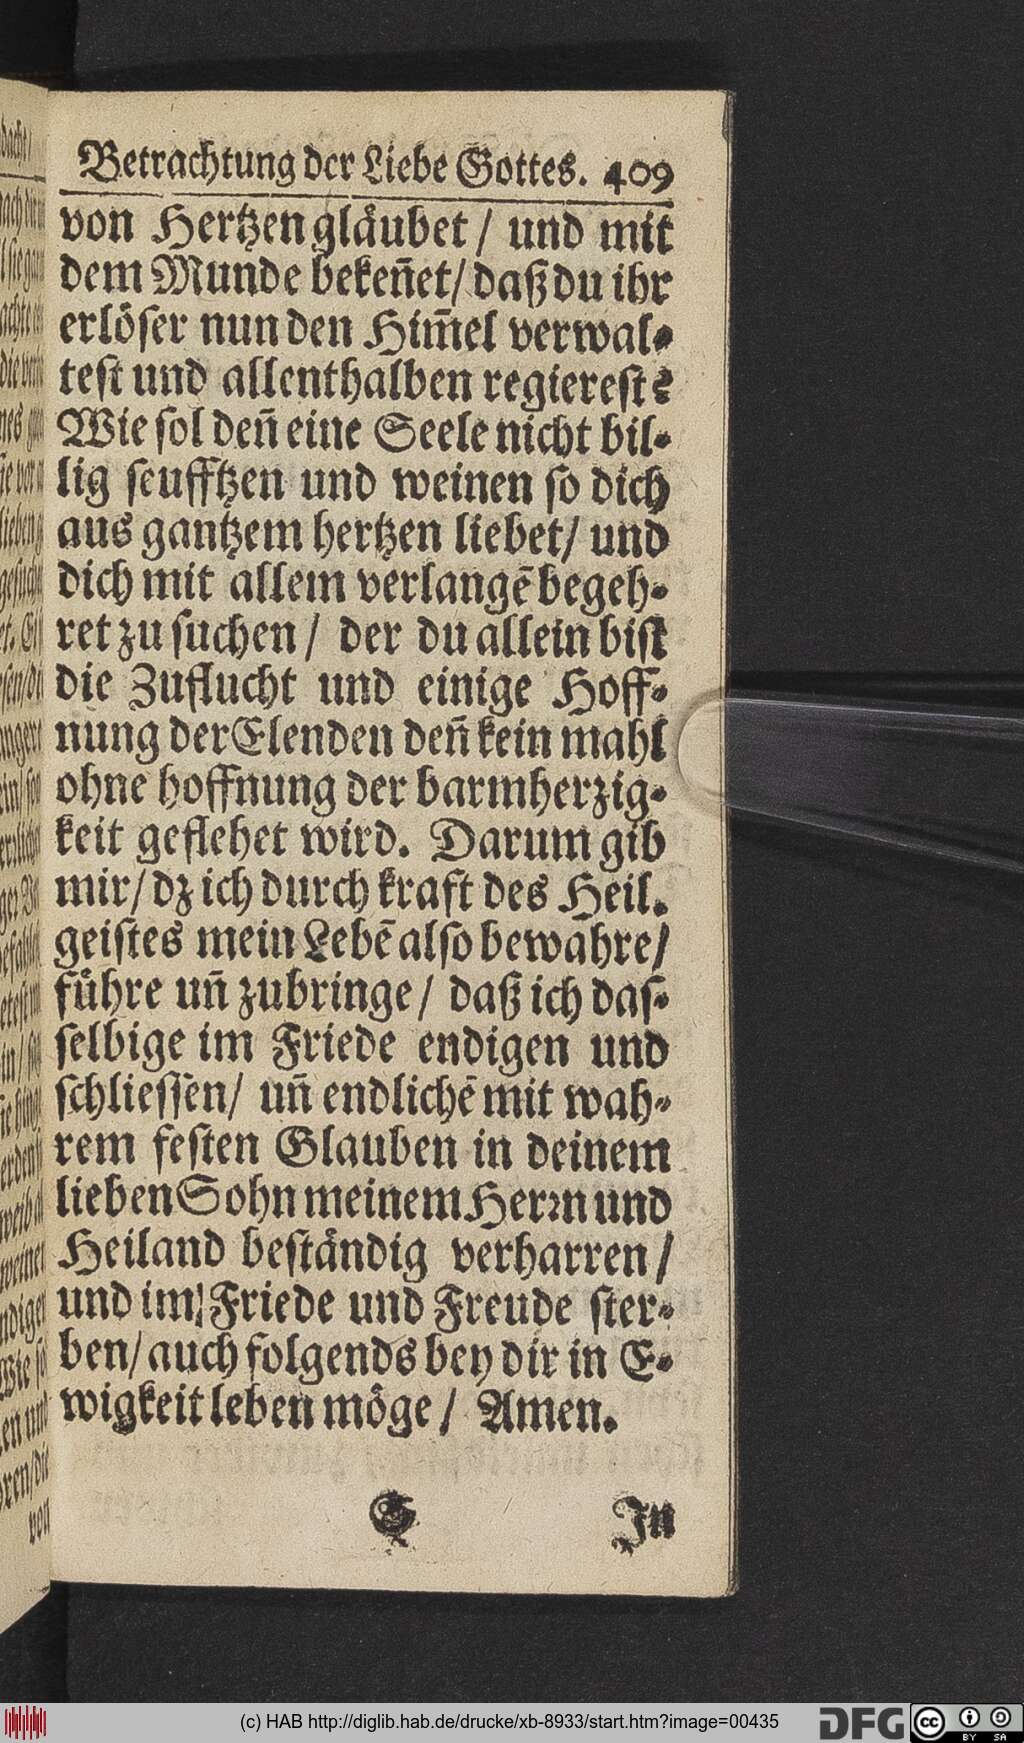 Betrachtung der Liebe Gottes. 409
von Hertzen glaͤubet / und mit
dem Munde bekeñet / daß du ihr
erloͤser nun den Him̃el verwal⸗
test und allenthalben regierest?
Wie sol deñ eine Seele nicht bil⸗
lig seufftzen und weinen so dich
aus gantzem hertzen liebet / und
dich mit allem verlangẽ begeh⸗
ret zu suchen / der du allein bist
die Zuflucht und einige Hoff⸗
nung der Elenden deñ kein mahl
ohne hoffnung der barmherzig⸗
keit geflehet wird. Darum gib
mir / dz ich durch kraft des Heil.
geistes mein Lebẽ also bewahre /
fuͤhre uñ zubringe / daß ich das⸗
selbige im Friede endigen und
schliessen / uñ endlichẽ mit wah⸗
rem festen Glauben in deinem
lieben Sohn meinem Herrn und
Heiland bestaͤndig verharren /
und im Friede und Freude ster⸗
ben / auch folgends bey dir in E⸗
wigkeit leben moͤge / Amen.
S In
(c) HAB http://diglib.hab.de/drucke/xb-8933/start.htm?image=00435
DFG cc BY SA